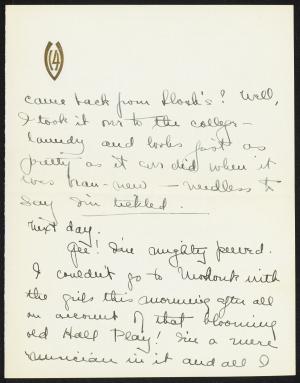 came back from Kloob's? Well,
I took it over to the college –
laundry and looks just as
pretty as it ever did when it
was bran-new – needless to
say I'm tickled.
next day.
Gee! I'm mighty peeved.
I couldn't go to Mohonk with
the girls this morning after all
on account of that blooming
old Hall Play! I'm a mere
musician in it and all I